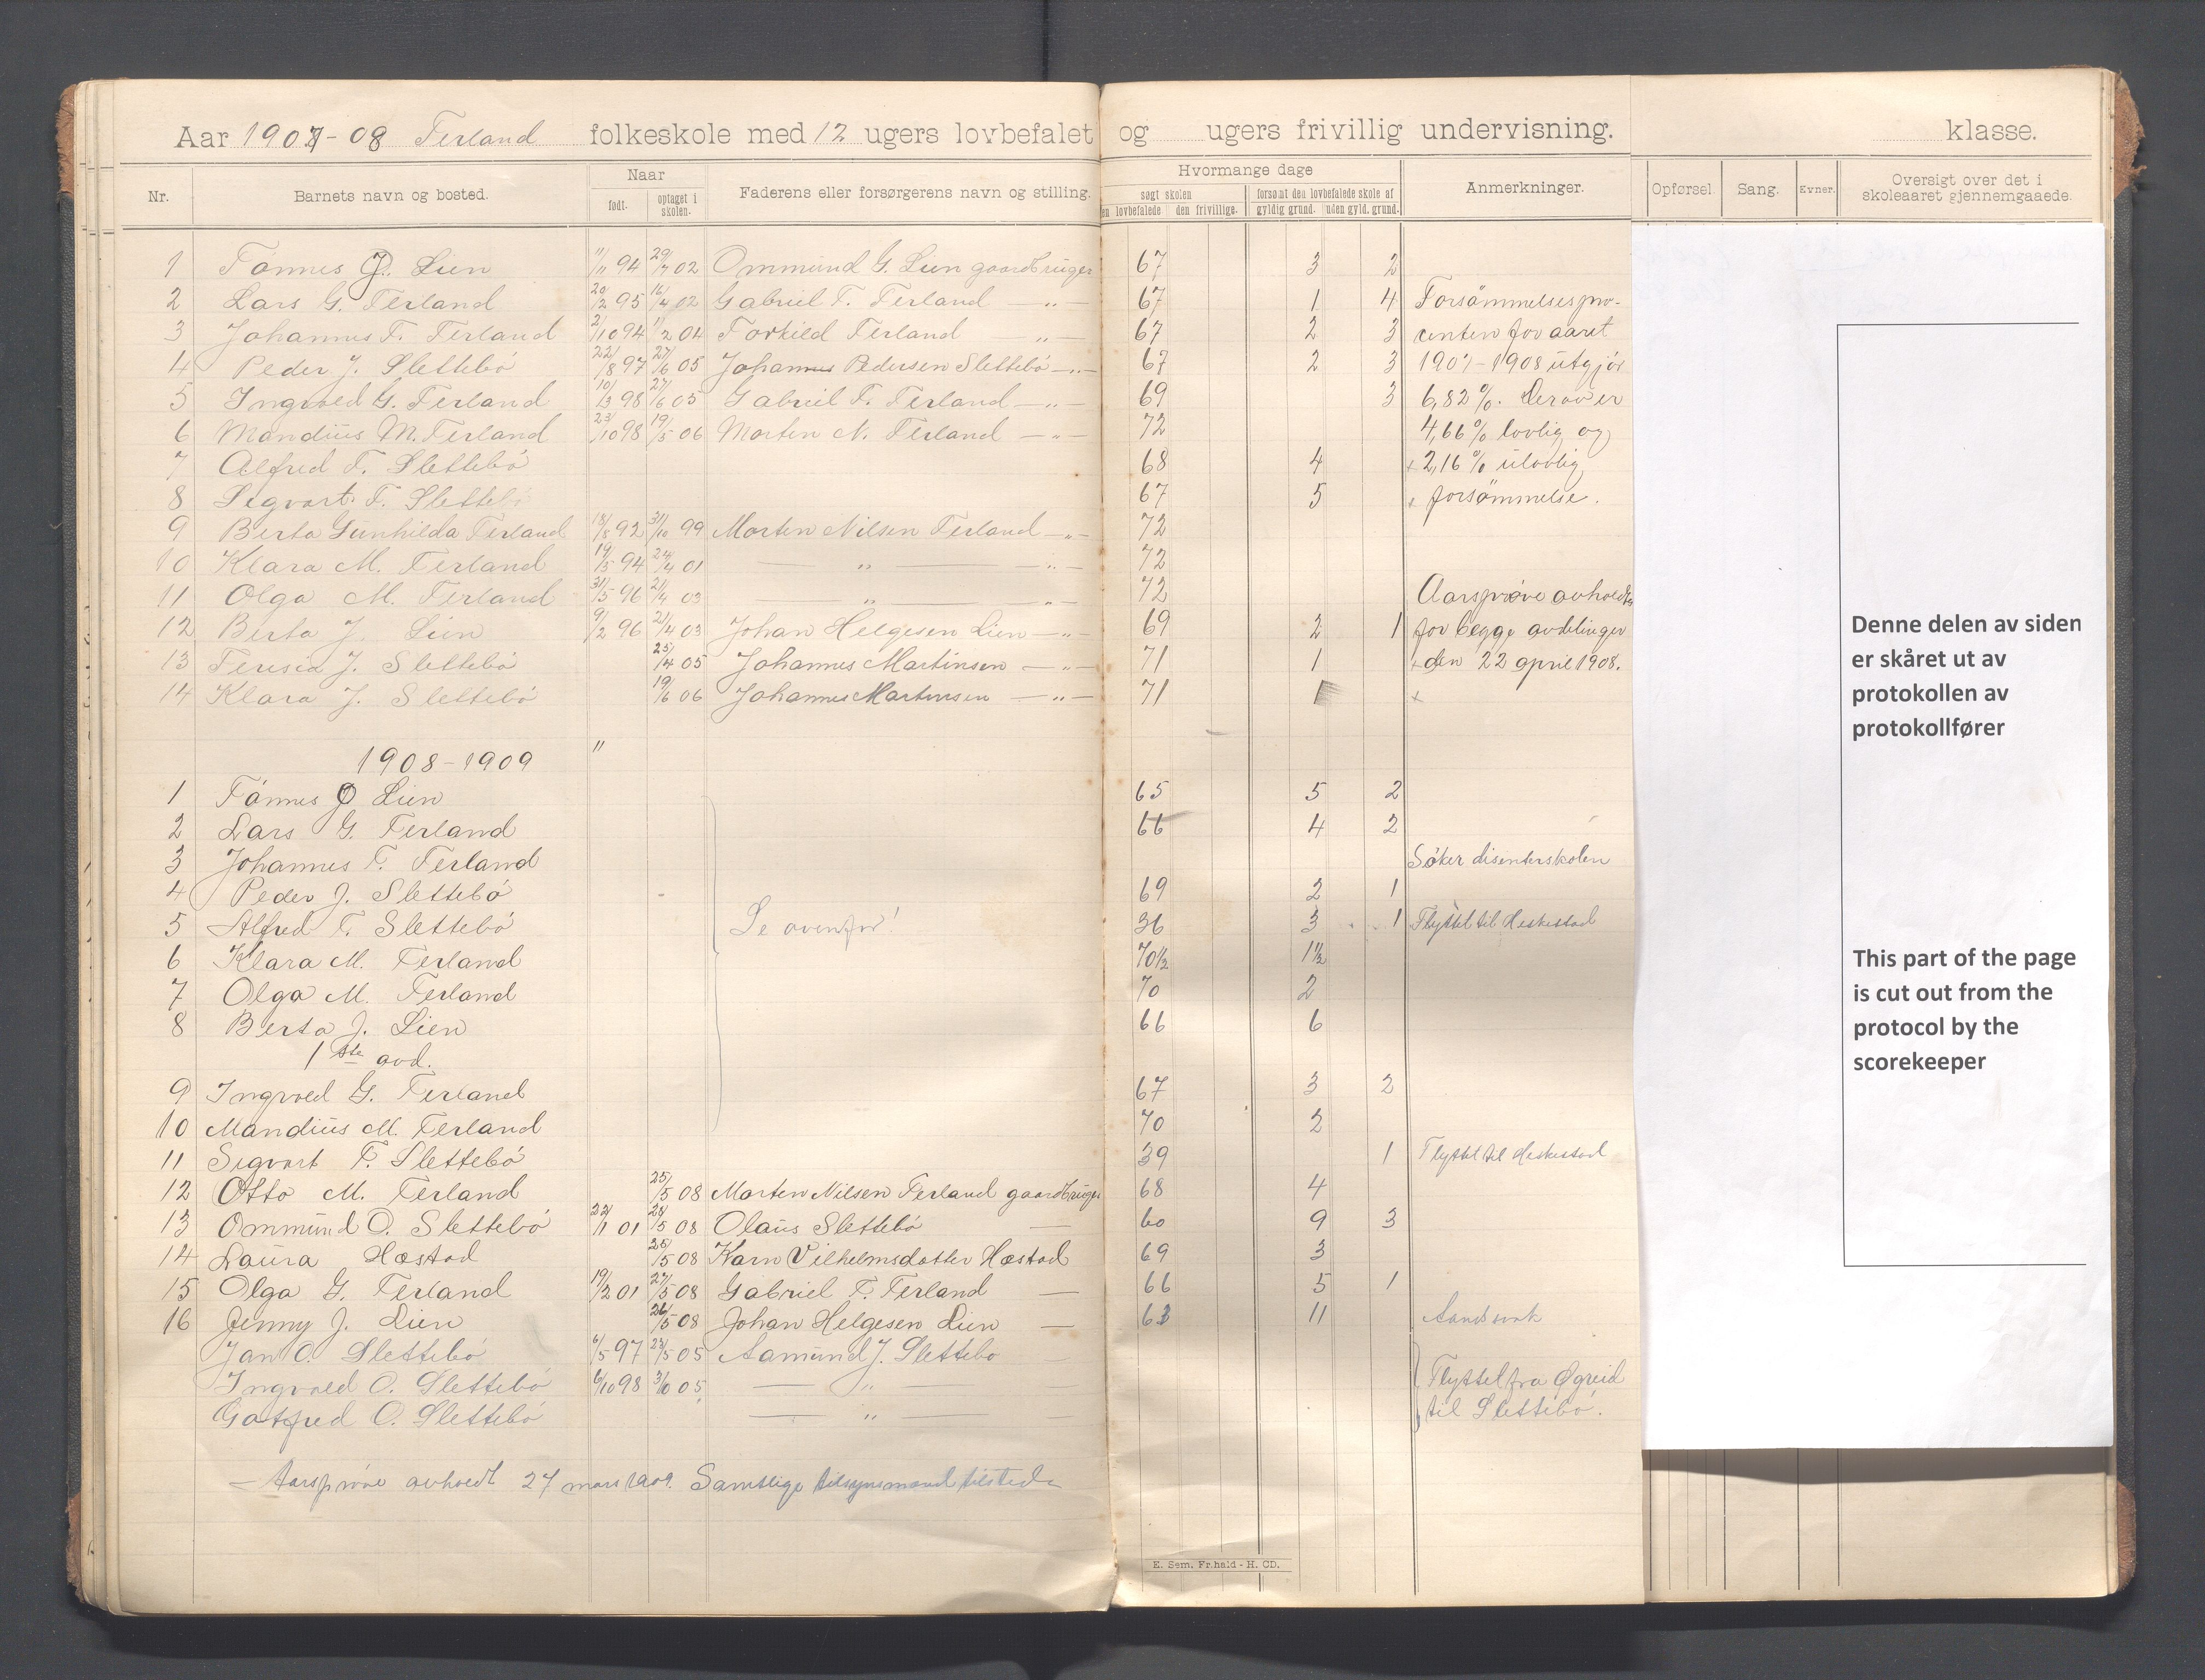 Aar 1907-08 Terland folkeskole med 12 ugers lovbefalet og ugers frivillig undervisning. klasse.
Nr. Barnets navn og bosted. Naar født. optaget i skolen. Faderens eller forsørgerens navn og stilling. Hvormange dage søgt skolen en lovbefalede den frivillige. forsømt den lovbefalede skole af gyldig grund. uden gyld. grund. Anmerkninger. Opførsel. Sang. Evner. Oversigt over det i skoleaaret gjennemgaaede.
1 Tönnes O. Lien 11/11 94 29/7 02 Ommund G. Lien gaardbruger 67 3 2
2 Lars G. Terland 20/2 95 16/4 02 Gabriel T. Terland — " — 67 1 4 Forsömmelsespro-
3 Johannes T. Terland 2/10 94 1/2 04 Torkild Terland — " — 67 2 3 centen for aaret
4 Peder J. Slettebö 22/8 97 27/6 05 Johannes Pedersen Slettebö — " — 67 2 3 1907-1908 utgjör
5 Ingvald G. Terland 10/3 98 27/6 05 Gabriel T. Terland — " — 69 3 6,82%. Derav er
6 Mandius M. Terland 23/10 98 19/5 06 Morten N. Terland — " — 72 4,66% lovlig og
7 Alfred T. Slettebö 68 4 + 2,16% ulovlig
8 Sigvart T. Slettebö 67 5 + forsömmelse.
9 Berta Gunhilda Terland 18/8 92 31/10 99 Morten Nilsen Terland — " — 72
10 Klara M. Terland 19/5 94 24/4 01 — " — " — 72
11 Olga M. Terland 31/5 96 21/4 03 — " — " — 72 Aarspröve avholdtes
12 Berta J. Lien 9/2 96 21/4 03 Johan Helgesen Lien — " — 69 2 1 for begge avdelinger
13 Teresia J. Slettebö 25/4 05 Johannes Martinsen — " — 71 1 + den 22 april 1908.
14 Klara J. Slettebö 19/6 06 Johannes Martinsen — " — 71 1 +
1908-1909 "
1 Tönnes O Lien 65 5 2
2 Lars G. Terland 66 4 2
3 Johannes T. Terland Söker disenterskolen
4 Peder J. Slettebö 69 2 1
5 Alfred T. Slettebö Se ovenfor! 36 3 1 Flyttet til Heskestad
6 Klara M. Terland 70 1/2 1 1/2
7 Olga M. Terland 70 2
8 Berta J. Lien 66 6
1ste avd.
9 Ingvald G. Terland 67 3 2
10 Mandius M. Terland 70 2
11 Sigvart T. Slettebö 39 1 Flyttet til Heskestad
12 Otto M. Terland 25/5 08 Morten Nilsen Terland gaardbruger 68 4
13 Ommund O. Slettebö 22/1 01 26/5 08 Olaus Slettebö — 60 9 3
14 Laura Hæstad 25/5 08 Karn Vilhelmsdatter Hæstad 69 3
15 Olga G. Terland 19/2 01 27/5 08 Gabriel T. Terland — 66 5 1
16 Jenny J. Lien 26/5 08 Johan Helgesen Lien — 63 11 Aandsvak
Jan O. Slettebö 6/5 97 23/5 05 Aamund J. Slettebö —
Ingvald O. Slettebö 6/10 98 3/10 05 — " — Flyttet fra Øgreid
Gotfred O. Slettebö — " — til Slettebö.
— Aarspröve avholdt 27 mars 1909. Samtlige tilsynsmænd tilstede
E. Sem. Fr.hald - H. CD.
Denne delen av siden
er skåret ut av
protokollen av
protokollfører
This part of the page
is cut out from the
protocol by the
scorekeeper